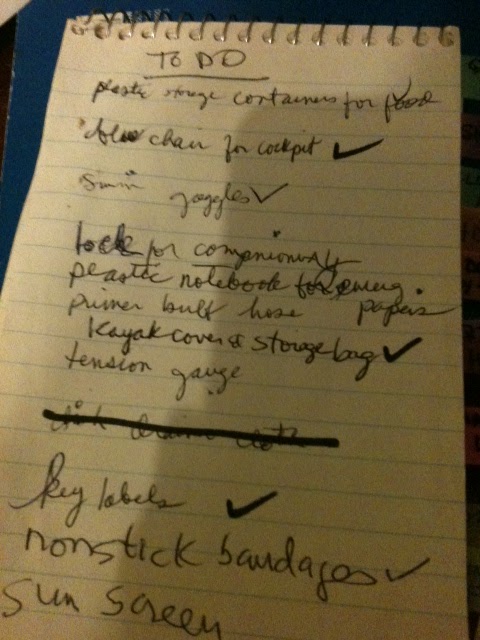 TO DO
plastic storage containers for food
blue chair for cockpit ✓
swim goggles ✓
lock for companionway
plastic notebook for emerg papers
primer bulb hose
kayak cover & storage bag ✓
tension gauge
key labels ✓
nonstick bandages ✓
sun screen